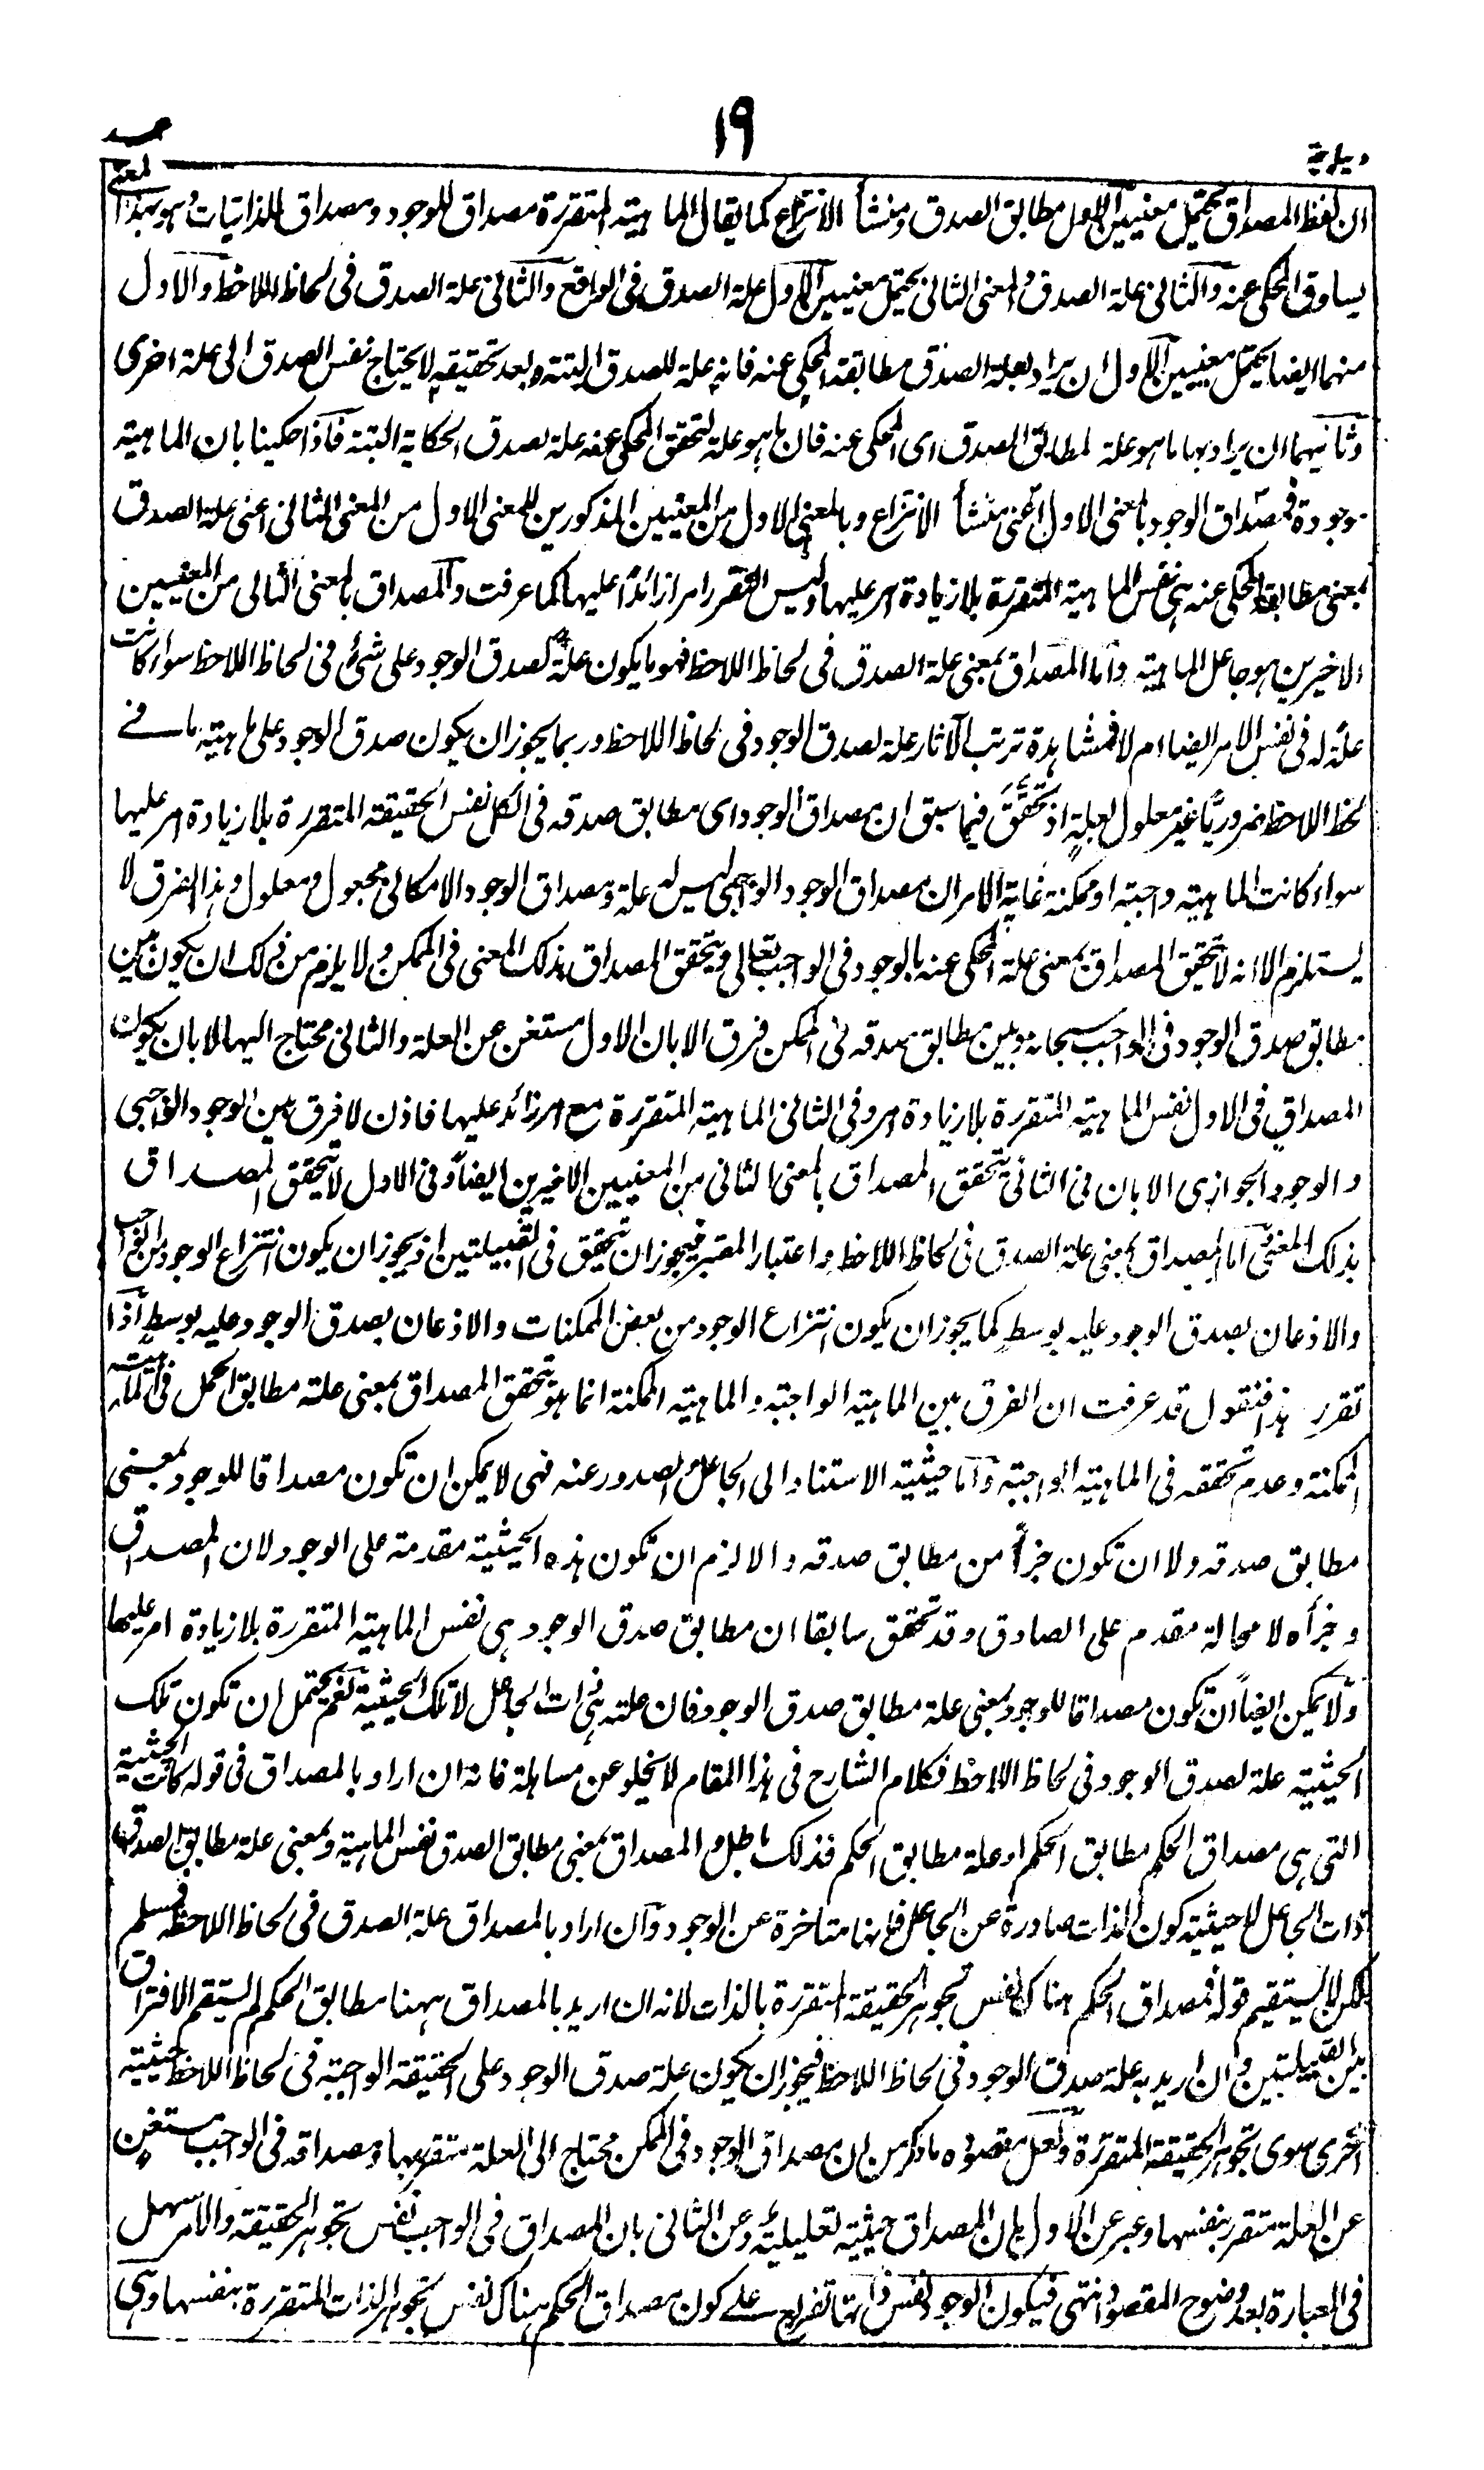 ١٩
ان لفظ المصداق يحتمل معنيين الاول مطابق الصدق ومنشأ الانتزاع كما يقال الماهية المتقررة مصداق للوجود ومصداق للذاتيات وهو بهذا المعنى
يساوق المحكى عنه والثانى علة الصدق والمعنى الثانى يحتمل معنيين الاول علة الصدق فى الواقع والثانى علة الصدق فى لحاظ اللاحظ والاول
منهما ايضا يحتمل معنيين الاول ان يراد بعلة الصدق مطابقة المحكى عنه فانه علة للصدق البتة وبعد تحقيقه لا يحتاج نفس الصدق الى علة اخرى
وثانيهما ان يراد بها ما هو علة لمطابق الصدق اى المحكى عنه فان ما هو علة لتحقق المحكى عنه علة لصدق الحكاية البتة فاذا حكينا بان الماهية
موجودة فمصداق الوجود بالمعنى الاول اعنى منشأ الانتزاع وبالمعنى الاول من المعنيين المذكورين للمعنى الاول من المعنى الثانى اعنى علة الصدق
بمعنى مطابقة المحكى عنه هى نفس الماهية المتقررة بلا زيادة امر عليها وليس التقرر امرا زائدا عليها كما عرفت والمصداق بالمعنى الثانى من المعنيين
الاخيرين هو جاعل الماهية واما المصداق بمعنى علة الصدق فى لحاظ اللاحظ فهو ما يكون علة لصدق الوجود على شئ فى لحاظ اللاحظ سواء كانت
علة له فى نفس الامر ايضا ام لا فمشاهدة ترتب الآثار علة لصدق الوجود فى لحاظ اللاحظ وربما يجوز ان يكون صدق الوجود على ماهية ما فى
لحظ اللاحظ ضروريا غير معلول لعلة اذ تحقق فيما سبق ان مصداق الوجود اى مطابق صدقه فى الكل نفس الحقيقة المتقررة بلا زيادة امر عليها
سواء كانت الماهية واجبة او ممكنة غاية الامر ان مصداق الوجود الواجبى ليس له علة ومصداق الوجود الامكانى مجعول ومعلول وهذا الفرق لا
يستلزم الا انه لا تحقق المصداق بمعنى علة المحكى عنه بالوجود فى الواجب تعالى ويتحقق المصداق بذلك المعنى فى الممكن ولا يلزم من ذلك ان يكون بين
مطابق صدق الوجود فى الواجب سبحانه وبين مطابق صدقه فى الممكن فرق الا بان الاول مستغن عن العلة والثانى محتاج اليها لا بان يكون
المصداق فى الاول نفس الماهية المتقررة بلا زيادة امر وفى الثانى الماهية المتقررة مع امر زائد عليها فاذن لا فرق بين الوجود الواجبى
والوجود الجوازى الا بان فى الثانى يتحقق المصداق بالمعنى الثانى من المعنيين الاخيرين ايضا وفى الاول لا يتحقق المصداق
بذلك المعنى اما المصداق بمعنى علة الصدق فى لحاظ اللاحظ واعتبار المعتبر فيجوز ان يتحقق فى القبيلتين اذ يجوز ان يكون انتزاع الوجود من الواجب
والاذعان بصدق الوجود عليه بوسط كما يجوز ان يكون انتزاع الوجود من بعض الممكنات والاذعان بصدق الوجود عليه بوسط اذا
تقرر هذا فنقول قد عرفت ان الفرق بين الماهية الواجبة والماهية الممكنة انما هو تحقق المصداق بمعنى علة مطابق الحمل فى الماهية
الممكنة وعدم تحققه فى الماهية الواجبة واما حيثية الاستناد الى الجاعل والصدور عنه فهى لا يمكن ان تكون مصداقا للوجود بمعنى
مطابق صدقه ولا ان تكون جزأ من مطابق صدقه والا لزم ان تكون هذه الحيثية مقدمة على الوجود لان المصداق
وجزأه لا محالة مقدم على الصادق وقد تحقق سابقا ان مطابق صدق الوجود هى نفس الماهية المتقررة بلا زيادة امر عليها
ولا يمكن ايضا ان تكون مصداقا للوجود بمعنى علة مطابق صدق الوجود فان علته هى ذات الجاعل لا تلك الحيثية نعم يحتمل ان تكون تلك
الحيثية علة لصدق الوجود فى لحاظ اللاحظ فكلام الشارح فى هذا المقام لا يخلو عن مساهلة فانه ان اراد بالمصداق فى قوله كانت الحيثية
التى هى مصداق الحكم مطابق الحكم او علة مطابق الحكم فذلك باطل والمصداق بمعنى مطابق الصدق نفس الماهية وبمعنى علة مطابق الصدق هو
ذات الجاعل لا حيثية كون الذات صادرة عن الجاعل فانها متاخرة عن الوجود وان اراد بالمصداق علة الصدق فى لحاظ اللاحظ فمسلم
لكن لا يستقيم قوله فمصداق الحكم هناك نفس تجوهر الحقيقة المتقررة بالذات لانه ان اريد بالمصداق ههنا مطابق الحكم لم يستقم الافتراق
بين القبيلتين وان اريد به علة صدق الوجود فى لحاظ اللاحظ فيجوز ان يكون علة صدق الوجود على الحقيقة الواجبة فى لحاظ اللاحظ حيثية
اخرى سوى تجوهر الحقيقة المتقررة ولعل مقصوده ما ذكر من ان مصداق الوجود فى الممكن محتاج الى العلة متقرر بها ومصداقه فى الواجب مستغن
عن العلة متقرر بنفسها وعبر عن الاول بان المصداق حيثية تعليلية وعن الثانى بان المصداق فى الواجب نفس تجوهر الحقيقة والامر سهل
فى العبارة بعد وضوح المقصود انتهى فيكون الوجود نفس ذاتها تفريع على كون مصداق الحكم هناك نفس تجوهر الذات المتقررة بنفسها وهى